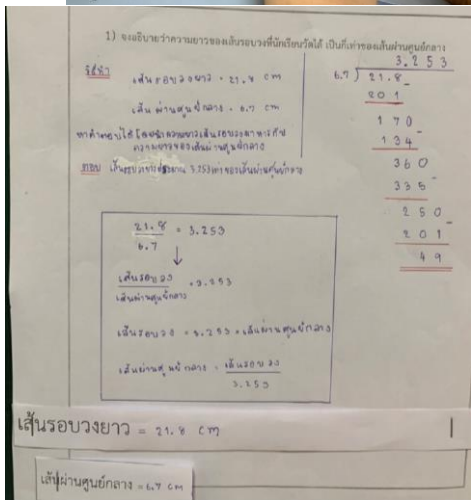 1) จงอธิบายว่าความยาวของเส้นรอบวงที่นักเรียนวัดได้ เป็นกี่เท่าของเส้นผ่านศูนย์กลาง
วิธีทำ เส้นรอบวงยาว = 21.8 cm
เส้นผ่านศูนย์กลาง = 6.7 cm
หาคำตอบได้โดยนำความยาวเส้นรอบวงมาหารกับ
ความยาวของเส้นผ่านศูนย์กลาง
ตอบ เส้นรอบวงยาวประมาณ 3.253 เท่าของเส้นผ่านศูนย์กลาง
3.253
6.7 ) 21.8
201
170
134
360
335
250
201
49
21.8 = 3.253
6.7
เส้นรอบวง = 3.253
เส้นผ่านศูนย์กลาง
เส้นรอบวง = 3.253 × เส้นผ่านศูนย์กลาง
เส้นผ่านศูนย์กลาง = เส้นรอบวง
3.253
เส้นรอบวงยาว = 21.8 cm
เส้นผ่านศูนย์กลาง = 6.7 cm